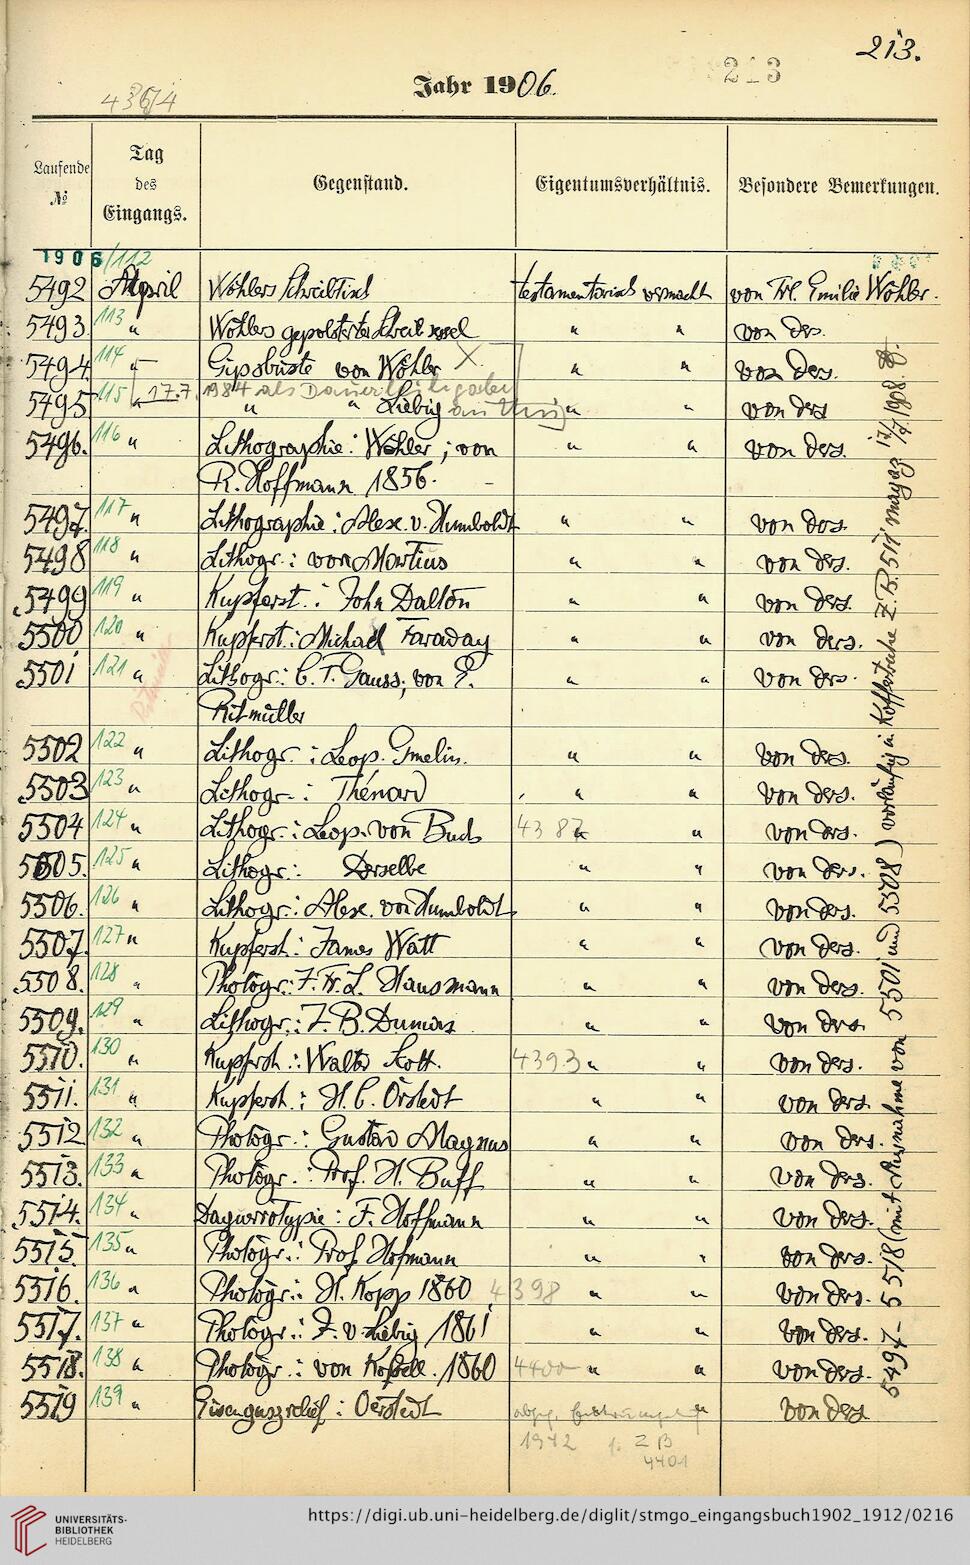 213.
213
Jahr 1906.
4364
Laufende No
Tag des Eingangs.
Gegenstand.
Eigentumsverhältnis.
Besondere Bemerkungen.
1906/112
5492 April Wöhlers Schreibtisch testamentarisch vermacht von Frl. Emilie Wöhler.
5493. 113 " Wöhlers gepolsterter Schreibsessel " " von ders.
5494. 114 " Gipsbüste von Wöhler X " " von ders.
17.7. 1984 als Dauerleihgabe
5495 115 " " " Liebig " " von ders
5496. 116 " Lithographie: Wöhler; von " " von ders.
R. Hoffmann 1856. -
5497. 117 " Lithographie: Alex. v. Humboldt " " von ders.
5498 118 " Lithogr.: von Martius " " von ders.
5499 119 " Kupferst.: John Dalton " " von ders.
5500 120 " Kupferst.: Michael Faraday " " von ders.
5501 121 " Lithogr.: C. F. Gauss; von E. " " von ders.
Ritmüller
5502 122 " Lithogr.: Leop. Gmelin. " " von ders.
5503 123 " Lithogr.: Thénard " " von ders.
5504 124 " Lithogr.: Leop. von Buch 4387 " " von ders.
5505. 125 " Lithogr.: Derselbe " " von ders.
5506. 126 " Lithogr.: Alex. von Humboldt " " von ders.
5507. 127 " Kupferst.: James Watt " " von ders.
5508. 128 " Photogr.: J. Fr. L. Hausmann " " von ders.
5509. 129 " Lithogr.: J. B. Dumas " " von ders.
5510. 130 " Kupferst.: Walter Scott. 4393 " " von ders.
5511. 131 " Kupferst.: H. C. Örstedt " " von ders
5512 132 " Photogr.: Gustav Magnus " " von ders.
5513. 133 " Photogr.: Prof. H. Buff " " von ders.
5514. 134 " Daguerrotypie: F. Hoffmann " " von ders.
5515. 135 " Photogr.: Prof. Hofmann " " von ders.
5516. 136 " Photogr.: H. Kopp 1860 4398 " " von ders.
5517. 137 " Photogr.: J. v. Liebig 1861 " " von ders.
5518. 138 " Photogr.: von Kobell. 1860 4400 " " von ders.
5519 139 " Eisengussrelief: Oerstedt " von ders
1942 s. ZB
4401
5497-5518 (mit Ausnahme von 5501 und 5508) vorläufig in Koffertruhe Z.B. 511 magaz 17/7.1908.
UNIVERSITÄTS-
BIBLIOTHEK
HEIDELBERG
https://digi.ub.uni-heidelberg.de/diglit/stmgo_eingangsbuch1902_1912/0216